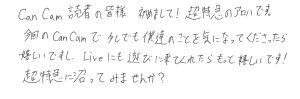 CanCam 読者の皆様 初めまして！超特急のアロハです。
今回のCanCamで少しでも僕達のことを気になってくださったら
嬉しいですし、Liveにも遊びに来てくれたらもっと嬉しいです！
超特急に沿ってみませんか？